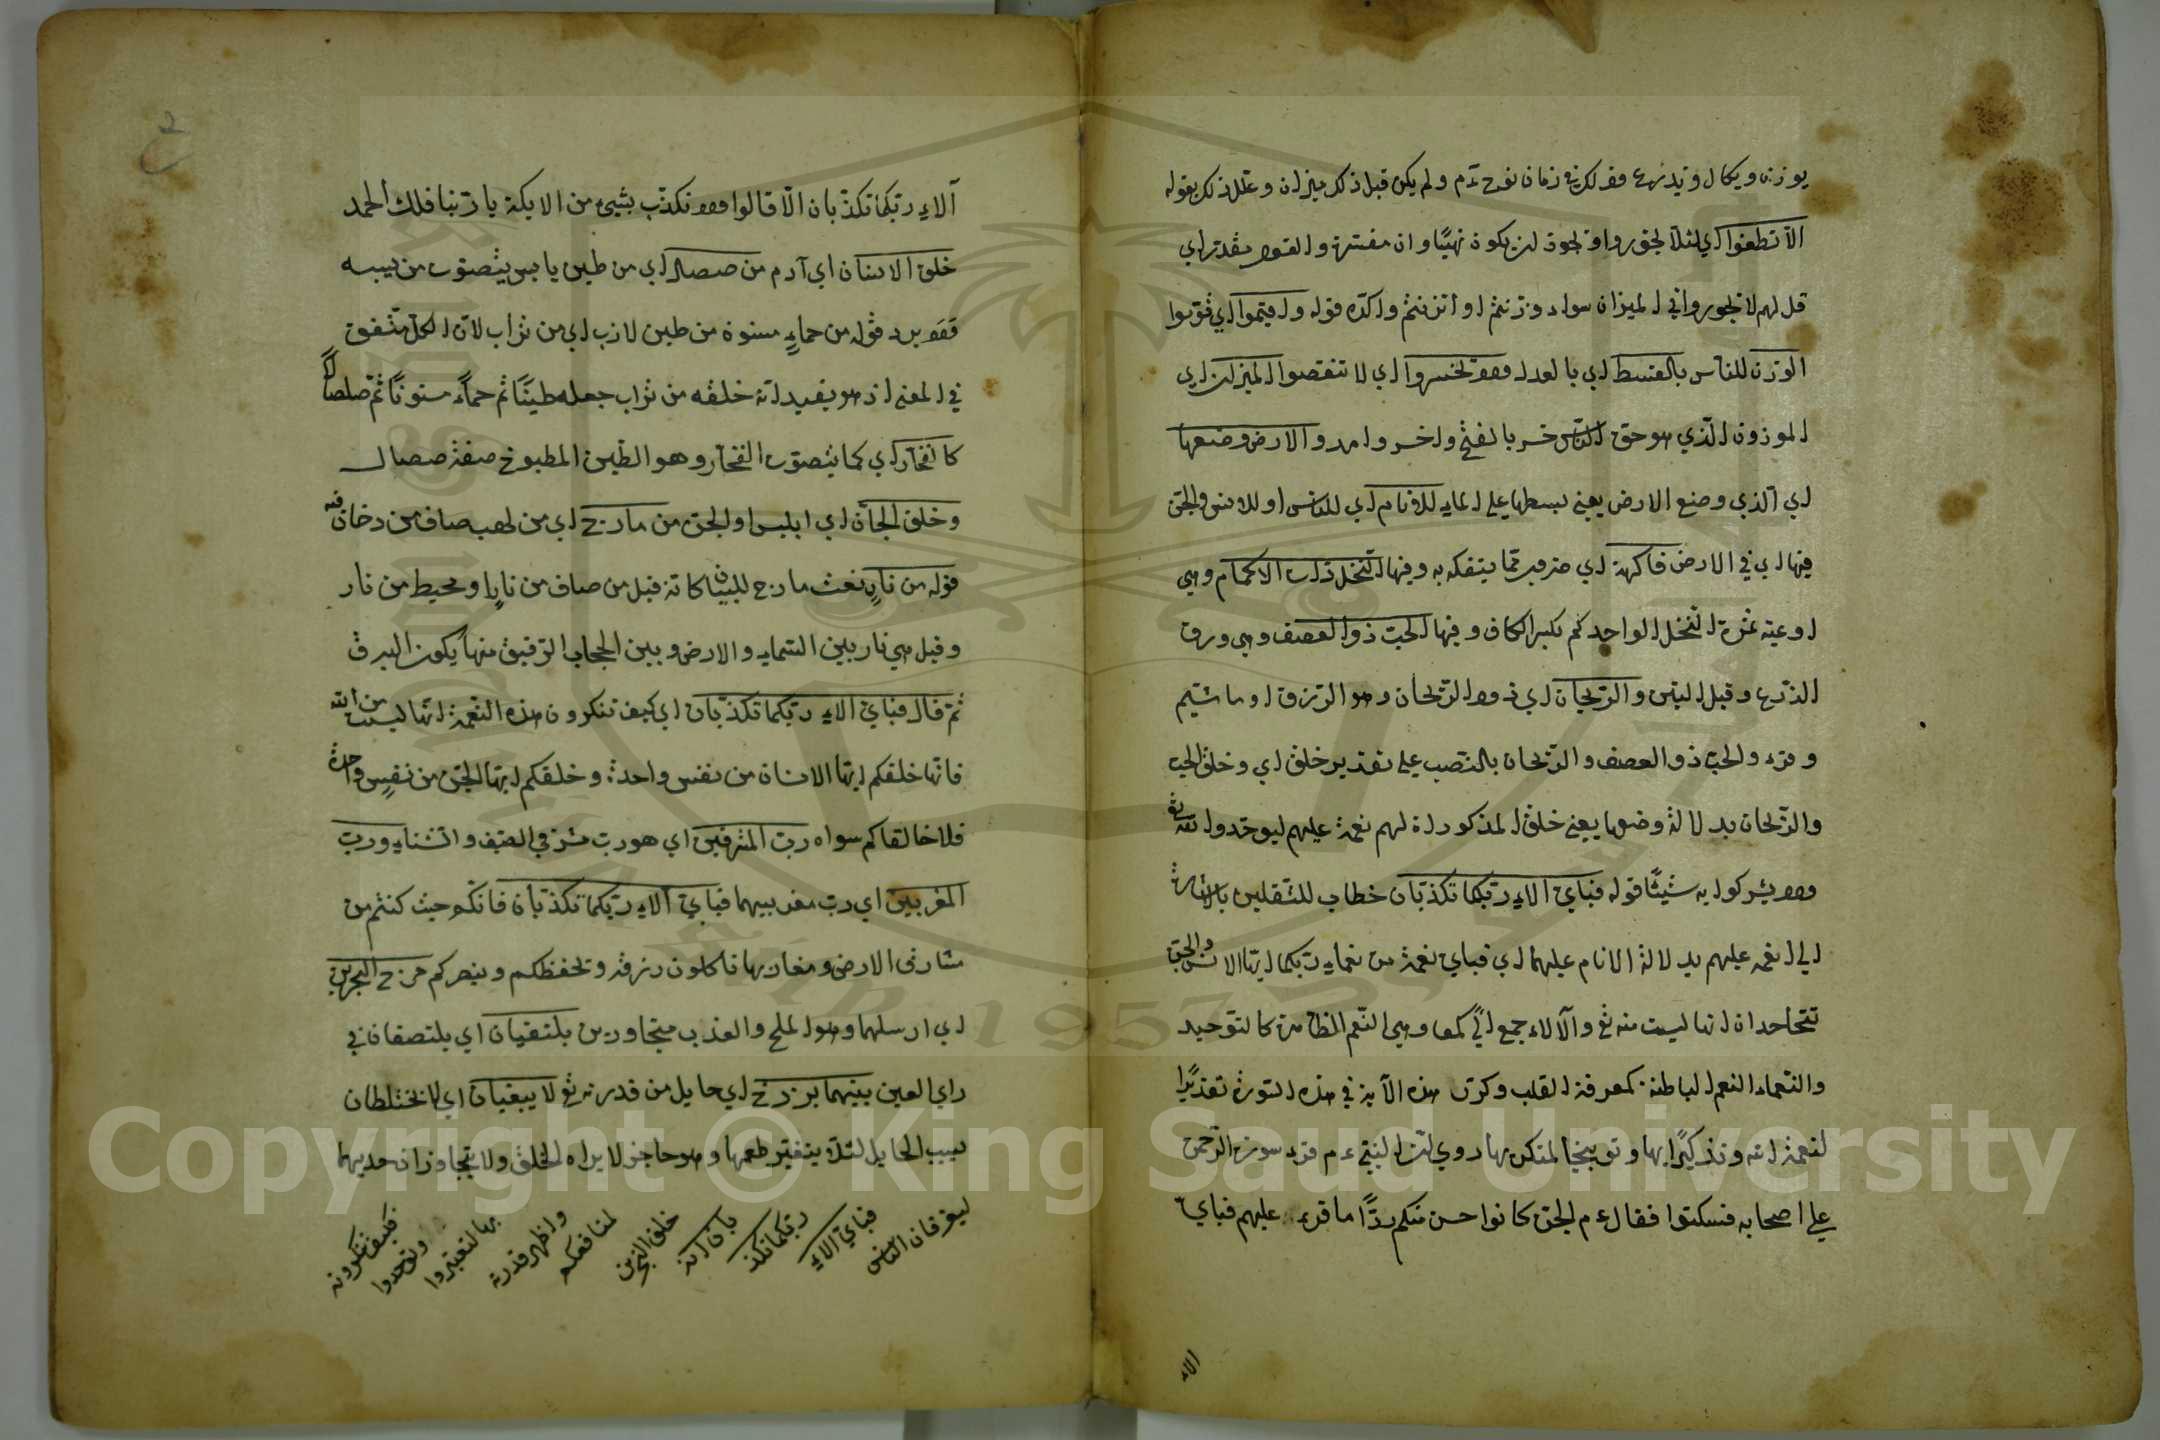 يوزن ويكال ويذرع وذلك في زمان نوح ءم ولم يكن قبل ذلك ميزان وعلل ذلك بقوله
الا تطغوا اي لئلا تجوروا ويجوز ان يكون نهيا وان مفسرة والقول مقدر اي
قل لهم لا تجوروا في الميزان سواء وزنتم او اتزنتم واكده قوله واقيموا اي قوموا
الوزن للناس بالقسط اي بالعدل ولا تخسروا اي لا تنقصوا الميزان اي
الموزون الذي هو حق الناس خسر بالفتح واخسر واحد والارض وضعها
اي الذي وضع الارض يعني بسطها على الماء للانام اي للناس او للانس والجن
فيها اي في الارض فاكهة اي ضروب مما يتفكه به وفيها النخل ذات الاكمام وهي
اوعية ثمرة النخل الواحد كم بكسر الكاف وفيها الحب ذو العصف وهي ورق
الزرع وقيل التبن والريحان اي ذو الريحان وهو الرزق او ما يشم
وقرء والحب ذو العصف والريحان بالنصب على تقدير خلق اي وخلق الحب
والريحان بدلالة وضعها يعني خلق المذكورة لهم نعمة عليهم ليوحدوا الله تع
ولا يشركوا به شيئا قوله فباي الاء ربكما تكذبان خطاب للثقلين بالاشارة
الى النعمة عليهم بدلالة الانام عليهما اي فباي نعمة من نعماء ربكما ايها الانس والجن
تتجاحدان انها ليست منه تع والآلاء جمع الى كمعا وهي النعم الظاهرة كالتوحيد
والنعماء النعم الباطنة كمعرفة القلب وكرر هذه الآية في هذه السورة تقديرا
لنعمة الله وتذكيرا بها وتوبيخا لمنكرها روي ان النبي ءم قرء سورة الرحمن
على اصحابه فسكتوا فقال ءم الجن كانوا احسن منكم ردا ما قرء عليهم فباي
الاء
آلاء ربكما تكذبان الا قالوا ولا نكذب بشيء من الايكة يا ربنا فلك الحمد
خلق الانسان اي آدم من صلصال اي من طين يابس يتصوت من يبسه
ولا يرد قوله من حماء مسنون من طين لازب اي من تراب لان الكل متفق
في المعنى اذ هو يفيد انه خلقه من تراب جعله طينا ثم حماء مسنونا ثم صلصالا
كالفخار اي كما يتصوت الفخار وهو الطين المطبوخ صفة صلصال
وخلق الجان اي ابليس او الجن من مارج اي من لهب صاف من دخان فيه
قوله من نار نعت مارج للبيان كانه قيل من صاف من نار او محيط من نار
وقيل هي نار بين السماء والارض وبين الحجاب الرقيق منها يكون البرق
ثم قال فباي الاء ربكما تكذبان اي كيف تنكرون هذه النعمة انها ليست من الله
فانها خلقكم ايها الانسان من نفس واحدة وخلقكم ايها الجن من نفس واحدة
فلا خالقا لكم سواه رب المشرقين اي هو رب مشرقي الصيف والشتاء ورب
المغربين اي رب مغربيهما فباي الاء ربكما تكذبان فانكم حيث كنتم من
مشارق الارض ومغاربها تاكلون رزقه ويحفظكم وينصركم مرج البحرين
اي ارسلهما وهو الملح والعذب متجاورين يلتقيان اي يلتصقان في
راي العين بينهما برزخ اي حايل من قدرته تع لا يبغيان اي لا يختلطان
بسبب الحايل لئلا يتغير طعمها وهو حاجز لا يراه الخلق ولا يتجاوزان حديهما
ليعرفان الناس
فباي الاء
ربكما تكذ
بان انه
خلق البحرين
لمنافعكم
واظهر قدرة
بها لتعتبروا
وتوحدوا
فكيف تنكرونه
Copyright © King Saud University
1957